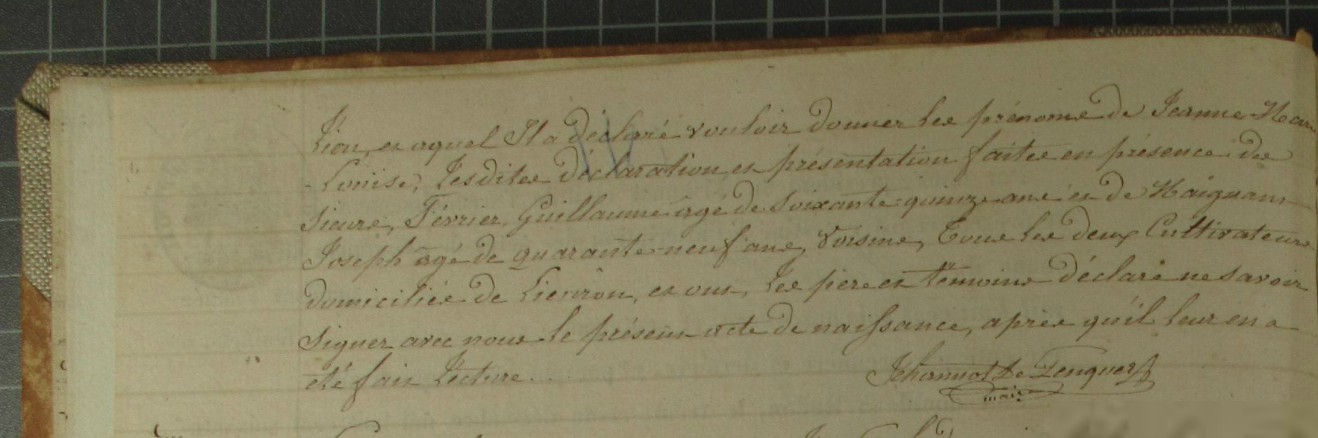 Lieu, et auquel Il a déclaré vouloir donner les prénoms de Jeanne-Marie
-Louise; Lesdites déclaration et présentation faites en présence des
sieurs, Février Guillaume âgé de soixante quinze ans et de Haignan
Joseph âgé de quarante-neuf ans, voisins, Tous les deux Cultivateurs
domiciliés de Lieuron, et ont, les père et témoins déclaré ne savoir
signer avec nous le présent acte de naissance, après qu'il leur en a
été fait Lecture.
Jehannot De Penquer
maire